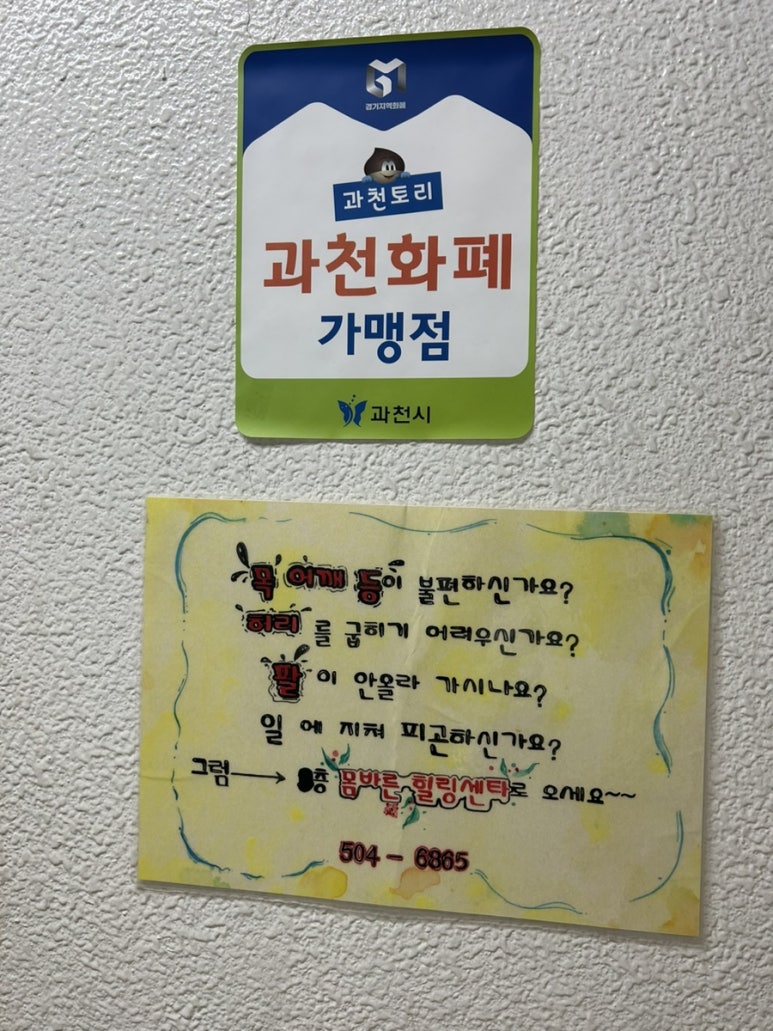 경기지역화폐
과천토리
과천화폐
가맹점
과천시
목 어깨 등이 불편하신가요?
허리를 굽히기 어려우신가요?
팔이 안올라 가시나요?
일에 지쳐 피곤하신가요?
그럼→ 층 몸바른 힐링센타로 오세요~~
504-6865